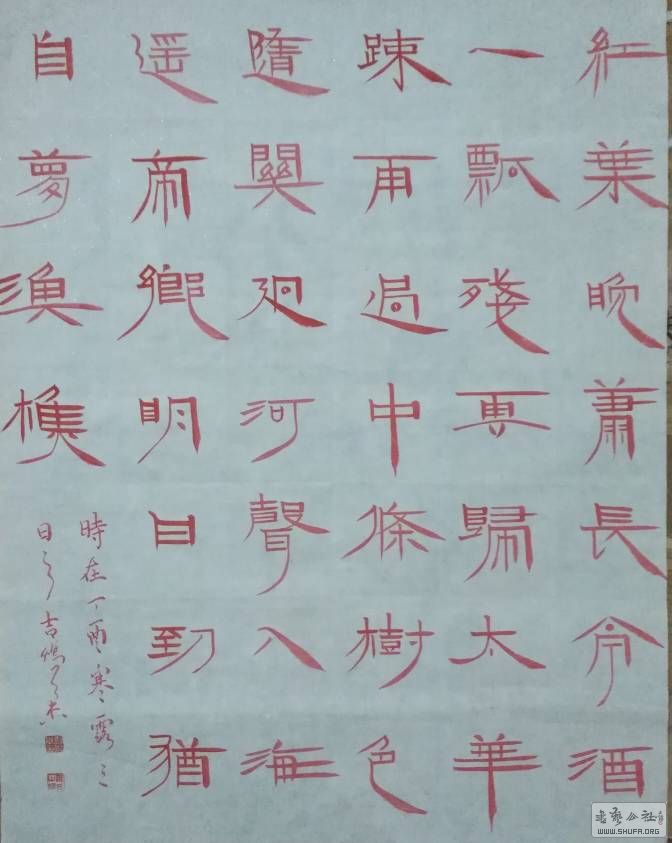 紅葉晚蕭長令酒
一瓢殘歸太華
踈雨過中條樹色
隨關迥河聲入海
遥帝鄉明日到猶
自夢漁樵
時在丁酉寒露三
日吉
WWW.SHUFA.ORG